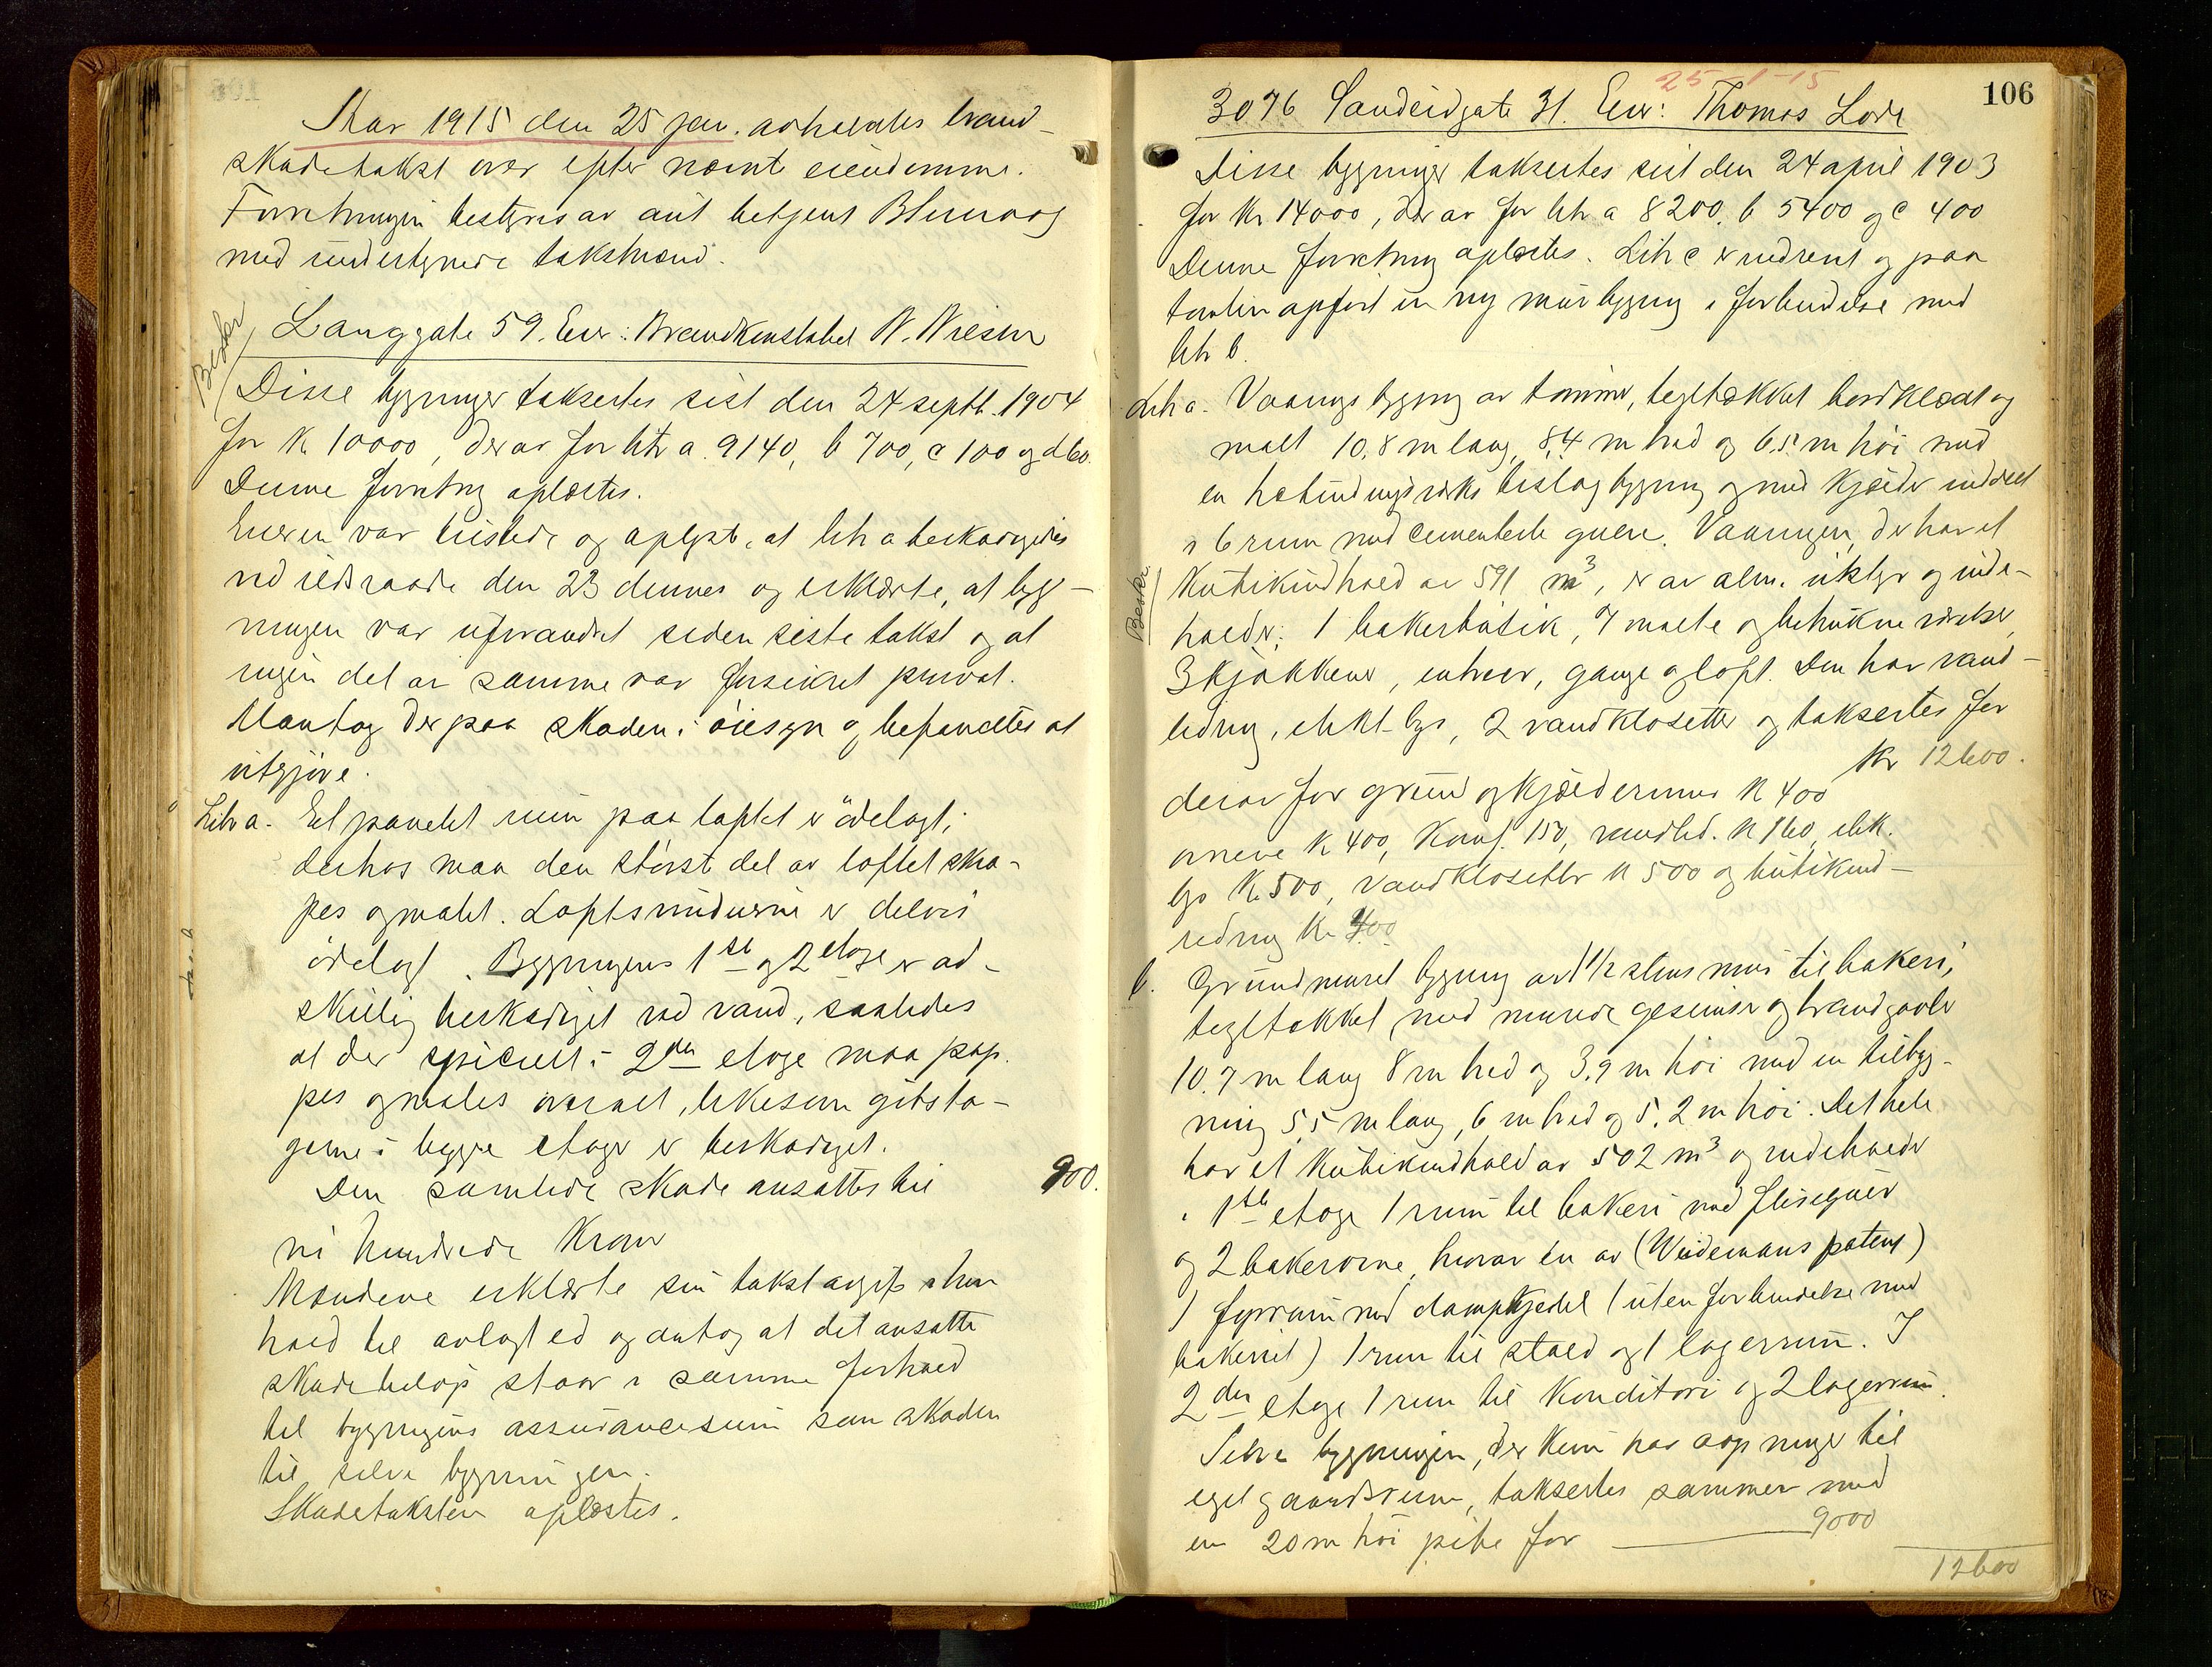 Aar 1915 den 25 jan. avholdtes brand-
skadetakst over efter nævnte eiendomme.
Forretningen bestyres av aut betjent
med undertegnede takstmænd.
Beskr
Langgate 59. Eier: Brandkonstabel N. Niesen
Disse bygninger taksertes sist den 24 septb. 1904
for Kr 10000, derav for litr a. 9140, b 700, c 100 og d 60.
Denne forretning oplæstes.
Eieren var tilstede og oplyste, at litr a beskadigedes
ved ildsvaade den 23 dennes og erklærte, at byg-
ningen var uforandret siden siste takst og at
ingen del av samme var forsikret privat.
Man tog derpaa skaden i öiesyn og befandtes at
utgjøre.
Litr a. Et panelet rum paa loftet er ödelagt;
derhos maa den störste del av loftet skra-
pes og males. Loftsvinduerne er delvis
ödelagt. Bygningens 1ste og 2 etage er ad-
skillig beskadiget ved vand, saaledes
at der specielt i 2den etage maa pap-
pes og males overalt, likesom gibsta-
gene i begge etager er beskadiget.
Den samlede skade ansattes til 900.
ni hundrede Kroner
Mændene erklærte sin takst avgit i hen-
hold til avlagt ed og antog at det ansatte
skadebeløp staar i samme forhold
til bygningens assurancesum som skaden
til selve bygningen.
Skadetaksten oplæstes.
106
25-1-15
3076 Sandeidgate 31. Eier: Thomas Lode
Disse bygninger taksertes sist den 24 april 1903
for Kr 14000, derav for litr a 8200, b 5400 og c 400
Denne forretning oplæstes. Litr c er nedrevet og paa
tomten opført en ny murbygning i forbindelse med
litr b.
Litr a. Vaaningsbygning av tømmer, tegltækket bordklædt og
malt 10,8 m lang, 8,4 m bred og 6,5 m høi med
en bislagbygning og med Kjælder inddelt
i 6 rum med cementerte gulve. Vaaningen, der har et
Beskr.
Kubikindhold av 591 m³, er av alm. utstyr og inde-
holder: 1 bakerbutik, 7 malte og betrukne værelser,
3 kjøkkener, entreer, gange og loft. Den har vand-
ledning, elekt. lys, 2 vandklosetter og taksertes for
Kr 12600.
derav for grund og kjældermur Kr 400
ovnene Kr 400, Komf. 150, vandled. Kr 160, elek.
lys Kr 500, vandklosetter Kr 500 og butikind-
redning Kr 400
b. Grundmuret bygning av 1 1/2 stens mur til bakeri,
tegltækket med murede gesimser og brandgavle
10.7 m lang 8 m bred og 3,9 m høi med en tilbyg-
ning 5,5 m lang, 6 m bred og 5,2 m høi. Det hele
har et Kubikindhold av 502 m³ og indeholder
i 1ste etage 1 rum til bakeri med flisegulv
og 2 bakerovne, hvorav en av (Weidemans patent)
1 fyrrum med dampkjedel (uten forbindelse med
bakeriet) 1 rum til stald og 1 lagerrum. I
2den etage 1 rum til Konditori og 2 lagerrum.
Selve bygningen, der kun har aapninger til
eget gaardsrum, taksertes sammen med
en 20 m høi pibe for 9000
12600